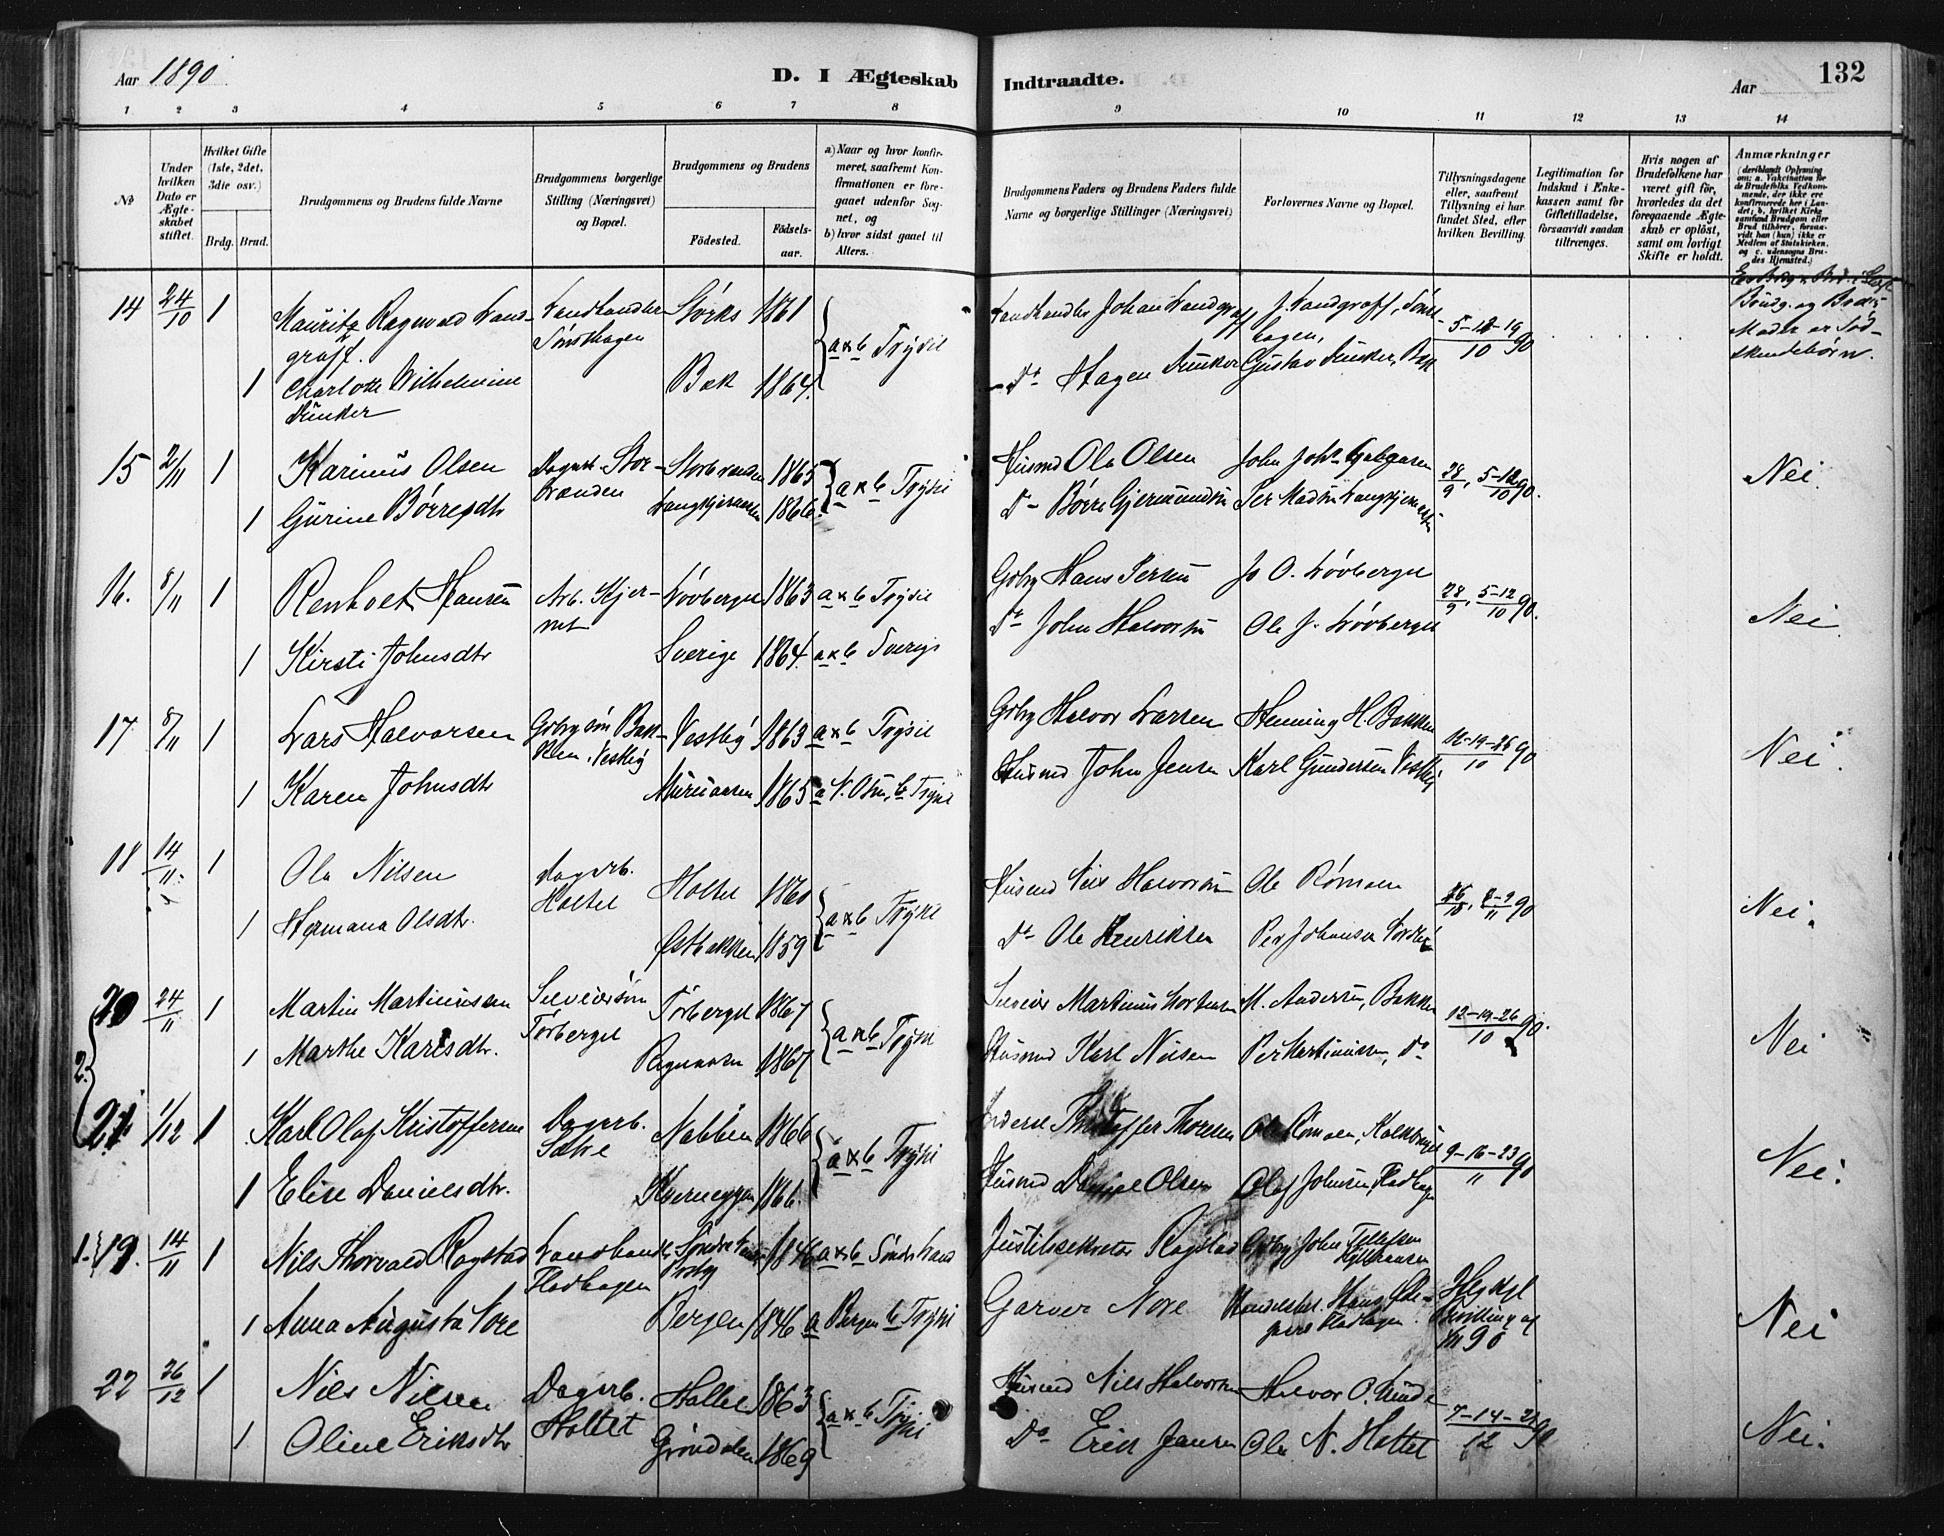 Aar 1890
D. I Ægteskab
Indtraadte.
Aar
132
1 2 3 4 5 6 7 8
9 10 11 12 13 14
No
Under hvilken Dato er Ægteskabet stiftet.
Hvilket Gifte (1ste, 2det, 3die osv.)
Brdg. Brud.
Brudgommens og Brudens fulde Navne
Brudgommens borgerlige Stilling (Næringsvei) og Bopæl.
Brudgommens og Brudens
Fødested.
Fødselsaar.
a) Naar og hvor konfirmeret, saafremt Konfirmationen er foregaaet udenfor Sognet, og
b) hvor sidst gaaet til Alters.
Brudgommens Faders og Brudens Faders fulde Navne og borgerlige Stillinger (Næringsvei)
Forlovernes Navne og Bopæl.
Tillysningsdagene eller, saafremt Tillysning ei har fundet Sted, efter hvilken Bevilling.
Legitimation for Indskud i Enkekassen samt for Giftetilladelse, forsaavidt saadan tiltrænges.
Hvis nogen af Brudefolkene har været gift før, hvorledes da det foregaaende Ægteskab er opløst, samt om lovligt Skifte er holdt.
Anmærkninger (deriblandt Oplysning om: a. Vakcination for de Brudefolks Vedkommende, der ikke ere konfirmerede her i Landet; b. hvilket Kirkesamfund Brudgom eller Brud tilhører, forsaavidt han (hun) ikke er Medlem af Statskirken, og c. udensogns Brudes Hjemsted.)
14 24/10 1 Mauritz Ragnvald Landgraff. Landhandler Sønsthagen Störks 1861 a & b Trysil Landhandler Johan Landgraff J. Landgraff, 5-12-19/10 90
Brudg. og Brudens Moder er Sødskendebørn.
1 Charlotte Wilhelmine Dunker Bak 1864. Do Hagen Dunker Gustav Dunker, Bak
15 2/11 1 Karinus Olsen Dagarb. Storbranden Storbranden 1865 a & b Trysil Husmd Ola Olsen 28/9, 5-12/10 90. Nei.
1 Gurine Børresdtr 1866 Do Børre Gjermundsen Per Madsen
16. 8/11 1 Renholt Hansen Arb. Kjernet Lövberget 1863 a & b Trysil Gbrg Hans Persen Jo O. Lövberget 28/9, 5-12/10 90. Nei
1 Kirsti Johnsdtr Sverige 1864. a & b Sverige Do John Halvorsen Ole J. Lövberget
17 8/11 1 Lars Halvorsen Gbrgsøn Bakken, Vestby Vestby 1863 a & b Trysil Gbrg Halvor Larsen Henning H. Bakken 12-19-26/10 90 Nei.
1 Karen Johnsdtr 1865 a N. Osen, b Trysil Husmd John Jensen Karl Gundersen Vestby
18 14/11 1 Ola Nilsen Dagarb. Holtet Holtet 1860 a & b Trysil Husmd Nils Halvorsen Ole Römoen 26/10, 2-9/11 90 Nei.
1 Hermana Olsdtr. Østbakken 1859 Do Ole Henriksen Per Johansen
2. 20 24/11 1 Martin Martinussen Selveiersøn Törberget Törberget 1867 a & b Trysil Selveier Martinus Mortensen M. Andersen, Bakken 12-19-26/10 90. Nei
1 Marthe Karlsdtr. Regnaasen 1867 Husmd Karl Nilsen Per Martinussen, Do
21 1/12 1 Karl Olaf Kristoffersen Dagarb. Sætre Nabben 1866 a & b Trysil Inderst Kristoffer Thoresen Ole Römoen, 9-16-23/11 90 Nei.
1 Elise Danielsdtr. Kverneggen 1866. Husmd Daniel Olsen Olaf Johnsen, Fladhagen
1. 19. 14/11 1 Nils Thorvald Rogstad Landhandl. Fladhagen 1846 a & b Justitssekretær Rogstad Gbrg John Tellefsen Nei
1 Anna Augusta Nore Bergen 1846 a Bergen b Trysil Garver Nore Handelsbet. Hans Fladhagen. Bevilling af 90
22 26/12 1 Nils Nilsen Dagarb. Holtet Holtet 1863 a & b Trysil Husmd Nils Halvorsen Halvor O. 7-14-21/12 90 Nei.
1 Oline Eriksdtr Gröndalen 1869 Do Erik Jansen Ola N. Holtet